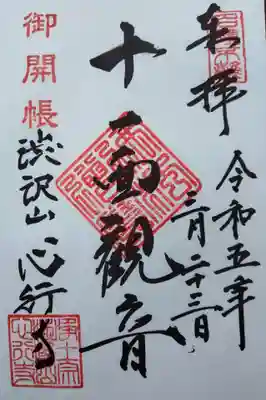 奉拝
令和五年
三月二十三日
十一面觀音
御開帳
渋沢山 心行寺